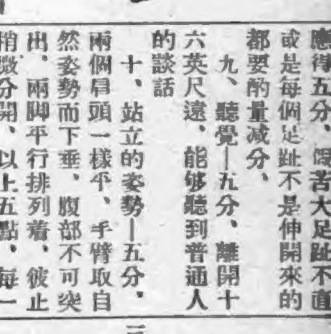 應得五分、倘若大足趾不直
或是每個足趾不是伸開來的
都要酌量減分、
九、聽覺—五分、離開十
六英尺遠、能够聽到普通人
的談話
十、站立的姿勢—五分、
兩個肩頭一樣平、手臂取自
然姿勢而下垂、腹部不可突
出、兩脚平行排列着、彼止
稍微分開、以上五點、每一